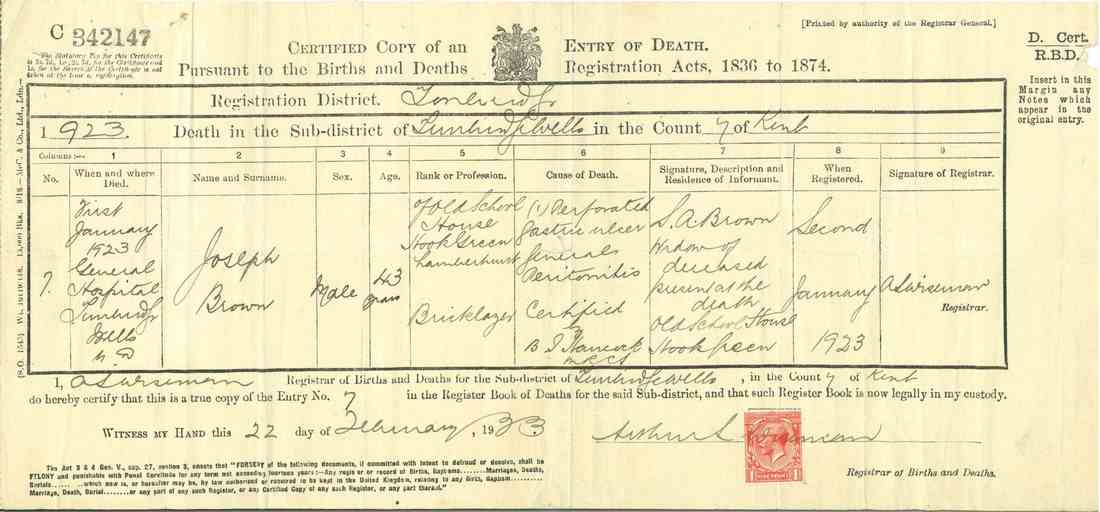 C 342147
[Printed by authority of the Registrar General.]
CERTIFIED COPY OF AN ENTRY OF DEATH.
PURSUANT TO THE BIRTHS AND DEATHS REGISTRATION ACTS, 1836 TO 1874.
D. Cert.
R.B.D.
Insert in this
Margin any
Notes which
appear in the
original entry.
Registration District. Tonbridge
1923. Death in the Sub-district of Tunbridge Wells in the County of Kent
Columns:— 1 2 3 4 5 6 7 8 9
No. When and where Died. Name and Surname. Sex. Age. Rank or Profession. Cause of Death. Signature, Description and Residence of Informant. When Registered. Signature of Registrar.
7.
First
January
1923
General
Hospital
Tunbridge
Wells
Joseph
Brown
Male
43
years
of Old School
House
Hook Green
Lamberhurst
Bricklayer
(1) Perforated
gastric ulcer
General
Peritonitis
Certified
by
Hancock
MRCS
S. A. Brown
Widow of
deceased
present at the
death
Old School House
Hook Green
Second
January
1923
A S Wiseman
Registrar.
I, A S Wiseman Registrar of Births and Deaths for the Sub-district of Tunbridge Wells, in the County of Kent
do hereby certify that this is a true copy of the Entry No. 7 in the Register Book of Deaths for the said Sub-district, and that such Register Book is now legally in my custody.
WITNESS MY HAND this 22 day of February, 1923
Arthur S Wiseman
Registrar of Births and Deaths.
The Act 3 & 4 Geo. V., cap. 27, section 3, enacts that "FORGERY of the following documents, if committed with intent to defraud or deceive, shall be
FELONY and punishable with Penal Servitude for any term not exceeding fourteen years:—Any register or record of Births, Baptisms........Marriages, Deaths,
Burials........which now is, or hereafter may be, by law authorised or required to be kept in the United Kingdom, relating to any Birth, Baptism..........
Marriage, Death, Burial........or any part of any such Register, or any Certified Copy of any such Register, or any part thereof."